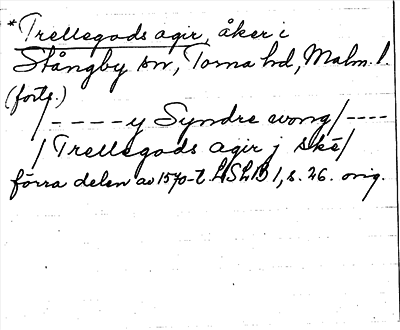 *Trellegods agir, åker i
Stångby sn, Torna hd, Malm. l.
(forts.)
/ - - - - y Syndre wong / - - - -
/ Trellegods agir j skê /
förra delen av 1570-t. LSLB 1, s. 26. orig.